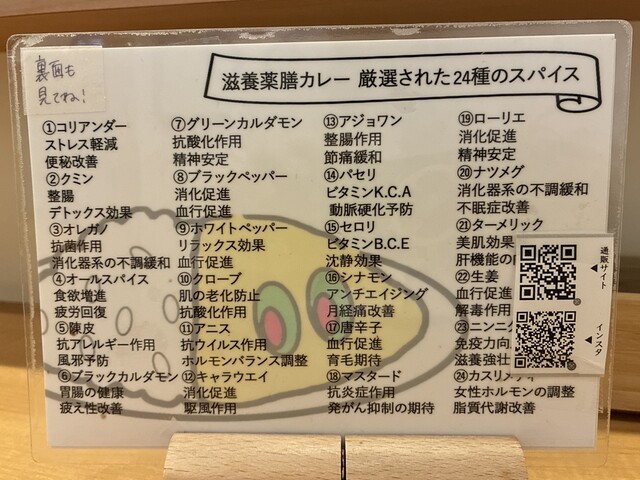 裏面も
見てね!
滋養薬膳カレー 厳選された24種のスパイス
①コリアンダー
ストレス軽減
便秘改善
②クミン
整腸
デトックス効果
③オレガノ
抗菌作用
消化器系の不調緩和
④オールスパイス
食欲増進
疲労回復
⑤陳皮
抗アレルギー作用
風邪予防
⑥ブラックカルダモン
胃腸の健康
疲え性改善
⑦グリーンカルダモン
抗酸化作用
精神安定
⑧ブラックペッパー
消化促進
血行促進
⑨ホワイトペッパー
リラックス効果
血行促進
⑩クローブ
肌の老化防止
抗酸化作用
⑪アニス
抗ウイルス作用
ホルモンバランス調整
⑫キャラウエイ
消化促進
駆風作用
⑬アジョワン
整腸作用
節痛緩和
⑭パセリ
ビタミンK.C.A
動脈硬化予防
⑮セロリ
ビタミンB.C.E
沈静効果
⑯シナモン
アンチエイジング
月経痛改善
⑰唐辛子
血行促進
育毛期待
⑱マスタード
抗炎症作用
発がん抑制の期待
⑲ローリエ
消化促進
精神安定
⑳ナツメグ
消化器系の不調緩和
不眠症改善
㉑ターメリック
美肌効果
肝機能の
㉒生姜
血行促進
解毒作用
㉓ニンニ
免疫力向
滋養強壮
㉔カスリメティ
女性ホルモンの調整
脂質代謝改善
通販サイト
インスタ